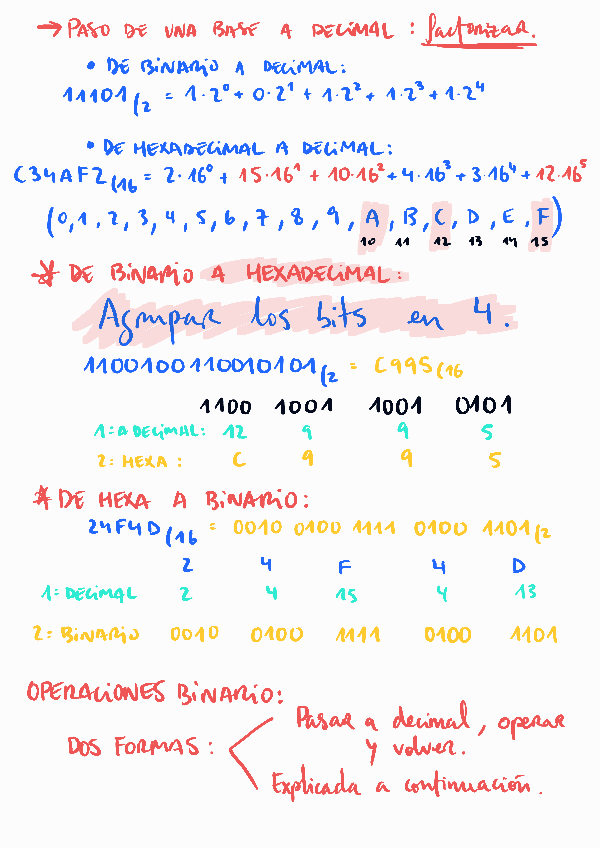 → PASO DE UNA BASE A DECIMAL: factorizar.
• DE BINARIO A DECIMAL:
11101(2 = 1·2⁰ + 0·2¹ + 1·2² + 1·2³ + 1·2⁴
• DE HEXADECIMAL A DECIMAL:
C34AF2(16 = 2·16⁰ + 15·16¹ + 10·16² + 4·16³ + 3·16⁴ + 12·16⁵
(0, 1, 2, 3, 4, 5, 6, 7, 8, 9, A, B, C, D, E, F)
10 11 12 13 14 15
* DE BINARIO A HEXADECIMAL:
Agrupar los bits en 4.
1100100110010101(2 = C995(16
1100 1001 1001 0101
1: A DECIMAL: 12 9 9 5
2: HEXA: C 9 9 5
* DE HEXA A BINARIO:
24F4D(16 = 0010 0100 1111 0100 1101(2
2 4 F 4 D
1: DECIMAL 2 4 15 4 13
2: BINARIO 0010 0100 1111 0100 1101
OPERACIONES BINARIO:
DOS FORMAS:
Pasar a decimal, operar
y volver.
Explicada a continuación.